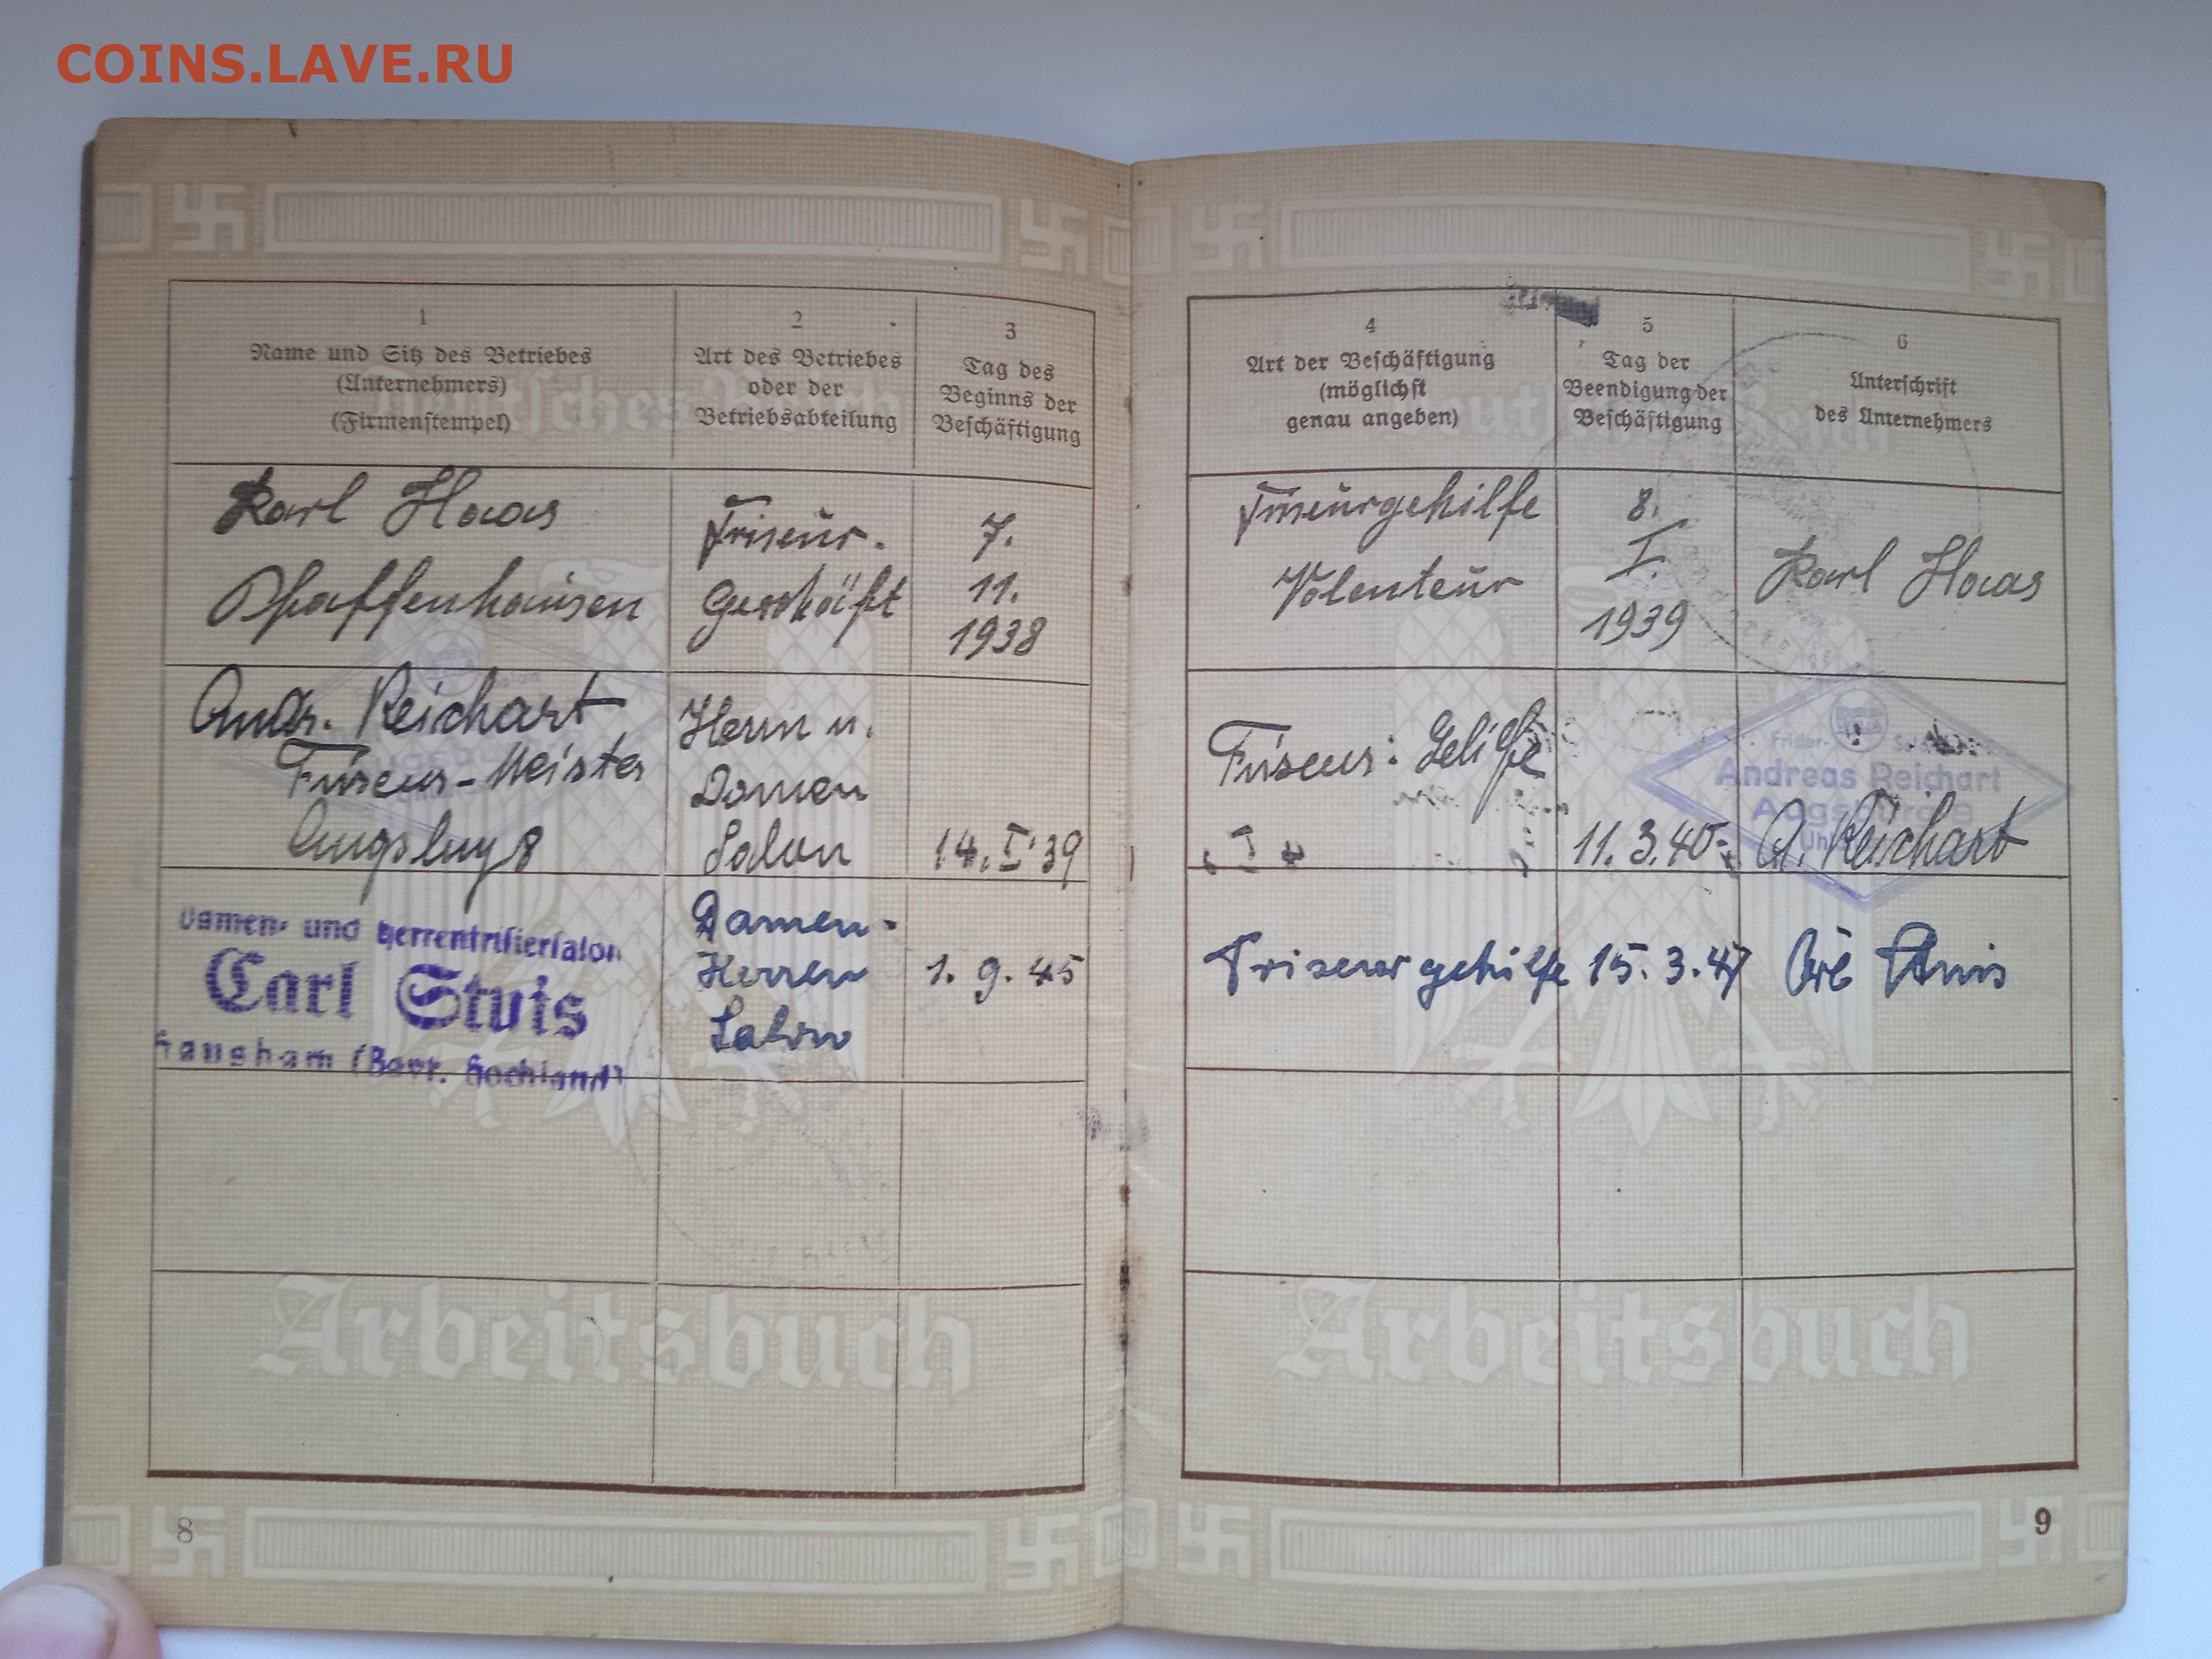 COINS.LAVE.RU
1
Name und Sitz des Betriebes
(Unternehmers)
(Firmenstempel)
2
Art des Betriebes
oder der
Betriebsabteilung
3
Tag des
Beginns der
Beschäftigung
Karl Haas
Pfaffenhausen
Friseur-
Geschäft
7.
11.
1938
Andr. Reichart
Friseur-Meister
Augsburg 8
Herrn u.
Damen
Salon
14. I 39
Damen- und Herrenfrisiersalon
Carl Stuis
Hausham (Bayr. Hochland)
Damen-
Herren
Salon
1. 9. 45
Arbeitsbuch
8
4
Art der Beschäftigung
(möglichst
genau angeben)
5
Tag der
Beendigung der
Beschäftigung
6
Unterschrift
des Unternehmers
Friseurgehilfe
Volenteur
8.
I.
1939
Karl Haas
Friseur:
11. 3. 40.
Andreas Reichart
A. Reichart
Friseurgehilfe
15. 3. 47
Arbeitsbuch
9